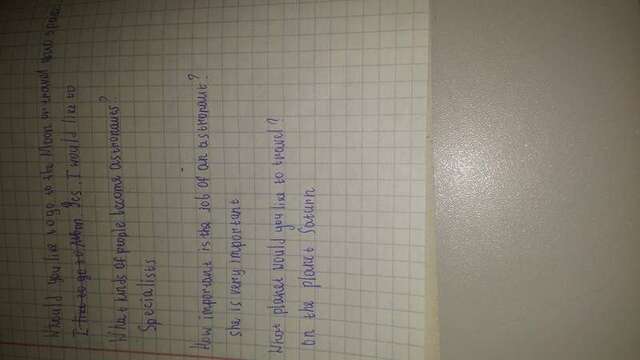 Whould you like to go to the Moon or travel into space
I like to go to Moon. Yes, I would like to
What kinds of people become astronauts?
Specialists
How important is the job of an astronaut?
she is very important
What planet would you like to travel?
on the planet Saturn